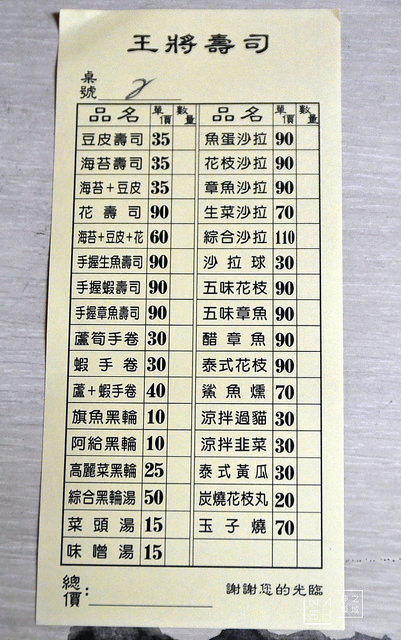 王將壽司
桌號 2
品名 單價 數量 品名 單價 數量
豆皮壽司 35 魚蛋沙拉 90
海苔壽司 35 花枝沙拉 90
海苔+豆皮 35 章魚沙拉 90
花壽司 90 生菜沙拉 70
海苔+豆皮+花 60 綜合沙拉 110
手握生魚壽司 90 沙拉球 30
手握蝦壽司 90 五味花枝 90
手握章魚壽司 90 五味章魚 90
蘆筍手卷 30 醋章魚 90
蝦手卷 30 泰式花枝 90
蘆+蝦手卷 40 鯊魚燻 70
旗魚黑輪 10 涼拌過貓 30
阿給黑輪 10 涼拌韭菜 30
高麗菜黑輪 25 泰式黃瓜 30
綜合黑輪湯 50 炭燒花枝丸 20
菜頭湯 15 玉子燒 70
味噌湯 15
總價: 謝謝您的光臨